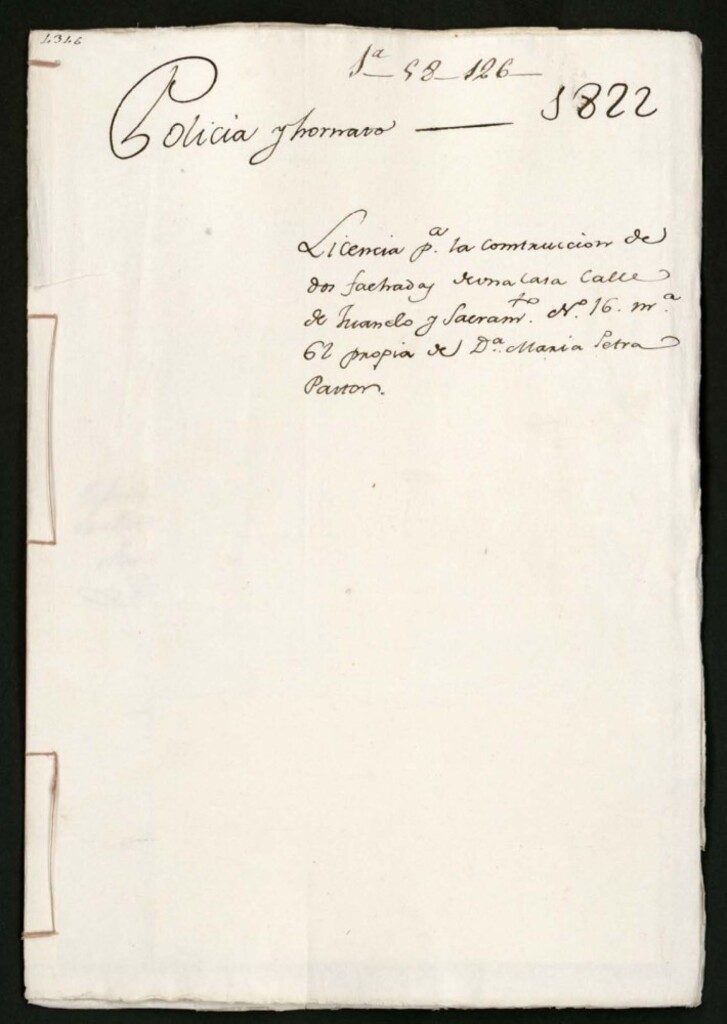 4346
1ª 58 126
Policia y hornato 1822
Licencia pª. la construccion de
dos fachadas de una casa Calle
de Juanelo y Sacramto. Nº. 16. mª.
62 propia de Dª. Maria Petra
Pastor.